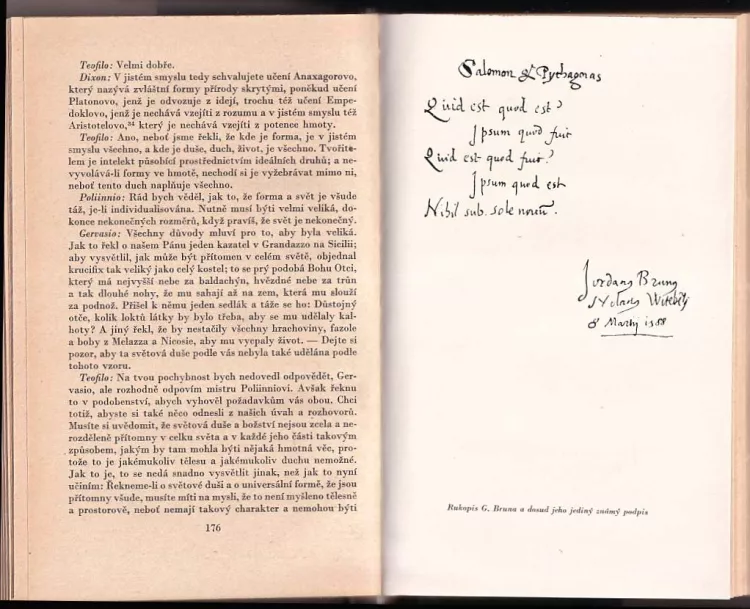 Teofilo: Velmi dobře.
Dixon: V jistém smyslu tedy schvalujete učení Anaxagorovo,
který nazývá zvláštní formy přírody skrytými, poněkud učení
Platonovo, jenž je odvozuje z idejí, trochu též učení Empe-
doklovo, jenž je nechává vzejíti z rozumu a v jistém smyslu též
Aristotelovo,³⁴ který je nechává vzejíti z potence hmoty.
Teofilo: Ano, neboť jsme řekli, že kde je forma, je v jistém
smyslu všechno, a kde je duše, duch, život, je všechno. Tvořite-
lem je intelekt působící prostřednictvím ideálních druhů; a ne-
vyvolává-li formy ve hmotě, nechodí si je vyžebrávat mimo ni,
neboť tento duch naplňuje všechno.
Poliinnio: Rád bych věděl, jak to, že forma a svět je všude
táž, je-li individualisována. Nutně musí býti velmi veliká, do-
konce nekonečných rozměrů, když pravíš, že svět je nekonečný.
Gervasio: Všechny důvody mluví pro to, aby byla veliká.
Jak to řekl o našem Pánu jeden kazatel v Grandazzo na Sicilii;
aby vysvětlil, jak může být přítomen v celém světě, objednal
krucifix tak veliký jako celý kostel; to se prý podobá Bohu Otci,
který má nejvyšší nebe za baldachýn, hvězdné nebe za trůn
a tak dlouhé nohy, že mu sahají až na zem, která mu slouží
za podnož. Přišel k němu jeden sedlák a táže se ho: Důstojný
otče, kolik loktů látky by bylo třeba, aby se mu udělaly kal-
hoty? A jiný řekl, že by nestačily všechny hrachoviny, fazole
a boby z Melazza a Nicosie, aby mu vycpaly život. — Dejte si
pozor, aby ta světová duše podle vás nebyla také udělána podle
tohoto vzoru.
Teofilo: Na tvou pochybnost bych nedovedl odpovědět, Ger-
vasio, ale rozhodně odpovím mistru Poliinniovi. Avšak řeknu
to v podobenství, abych vyhověl požadavkům vás obou. Chci
totiž, abyste si také něco odnesli z našich úvah a rozhovorů.
Musíte si uvědomit, že světová duše a božství nejsou zcela a ne-
rozděleně přítomny v celku světa a v každé jeho části takovým
způsobem, jakým by tam mohla býti nějaká hmotná věc, pro-
tože to je jakémukoliv tělesu a jakémukoliv duchu nemožné.
Jak to je, to se nedá snadno vysvětlit jinak, než jak to nyní
učiním: Řekneme-li o světové duši a o universální formě, že jsou
přítomny všude, musíte míti na mysli, že to není myšleno tělesně
a prostorově, neboť nemají takový charakter a nemohou býti
176
Salomon et Pythagoras
Quid est quod est?
Ipsum quod fuit
Quid est quod fuit?
Ipsum quod est
Nihil sub sole novum.
Jordanus Brunus
Nolanus Witeberg
8 Martij 1588
Rukopis G. Bruna a dosud jeho jediný známý podpis